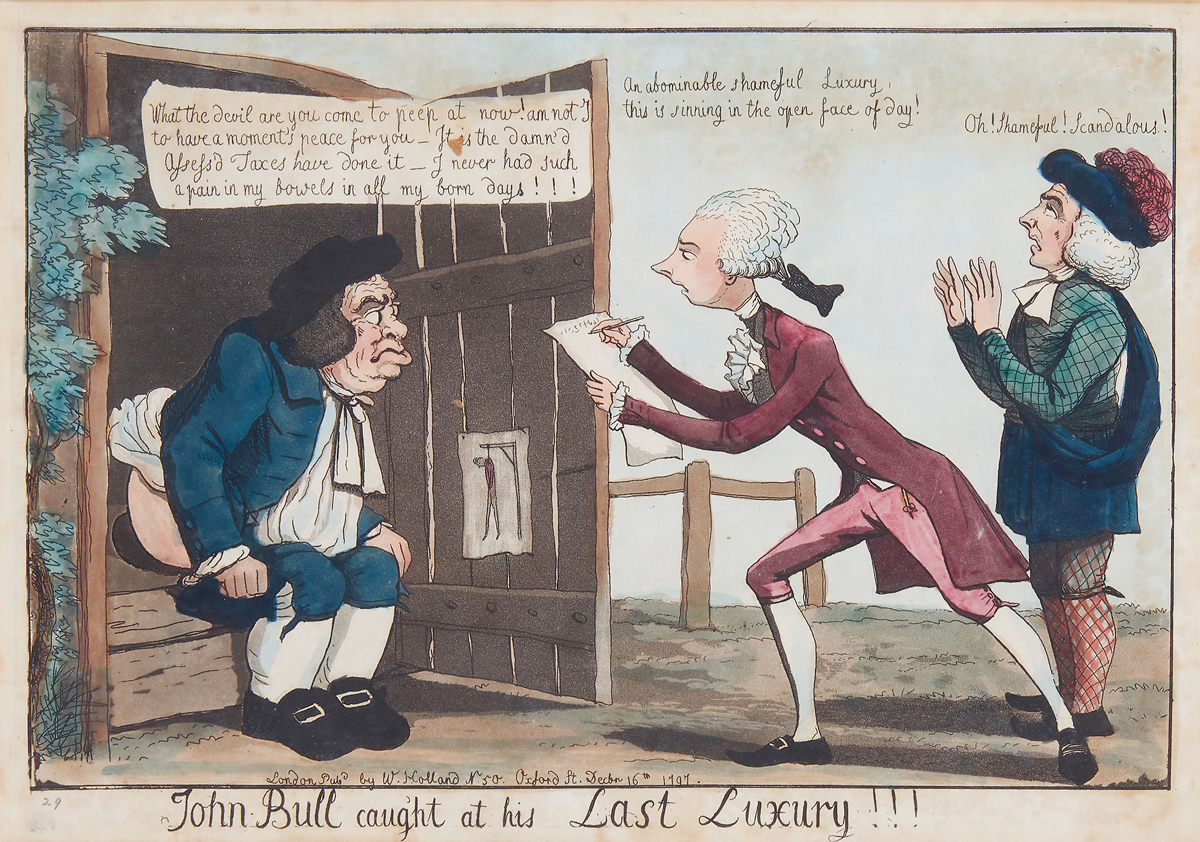 What the devil are you come to peep at now! am not I
to have a moment's peace for you — It is the damn'd
Assess'd Taxes have done it — I never had such
a pain in my bowels in all my born days ! ! !
An abominable shameful Luxury,
this is sinning in the open face of day!
Oh! Shameful! Scandalous!
London Pubd by W. Holland No 50. Oxford St. Decbr 16th 1797.
29
John Bull caught at his Last Luxury !!!